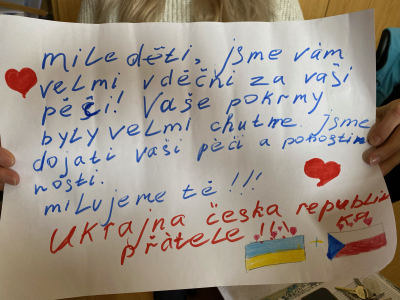 mile děti, jsme vám
velmi vděčni za vaši
péči! Vaše pokrmy
byly velmi chutme. jsme
dojati vaši péči a pohostin
nosti.
milujeme tě !!!
Ukrajna česka republi
ka
přàtele !!!
+